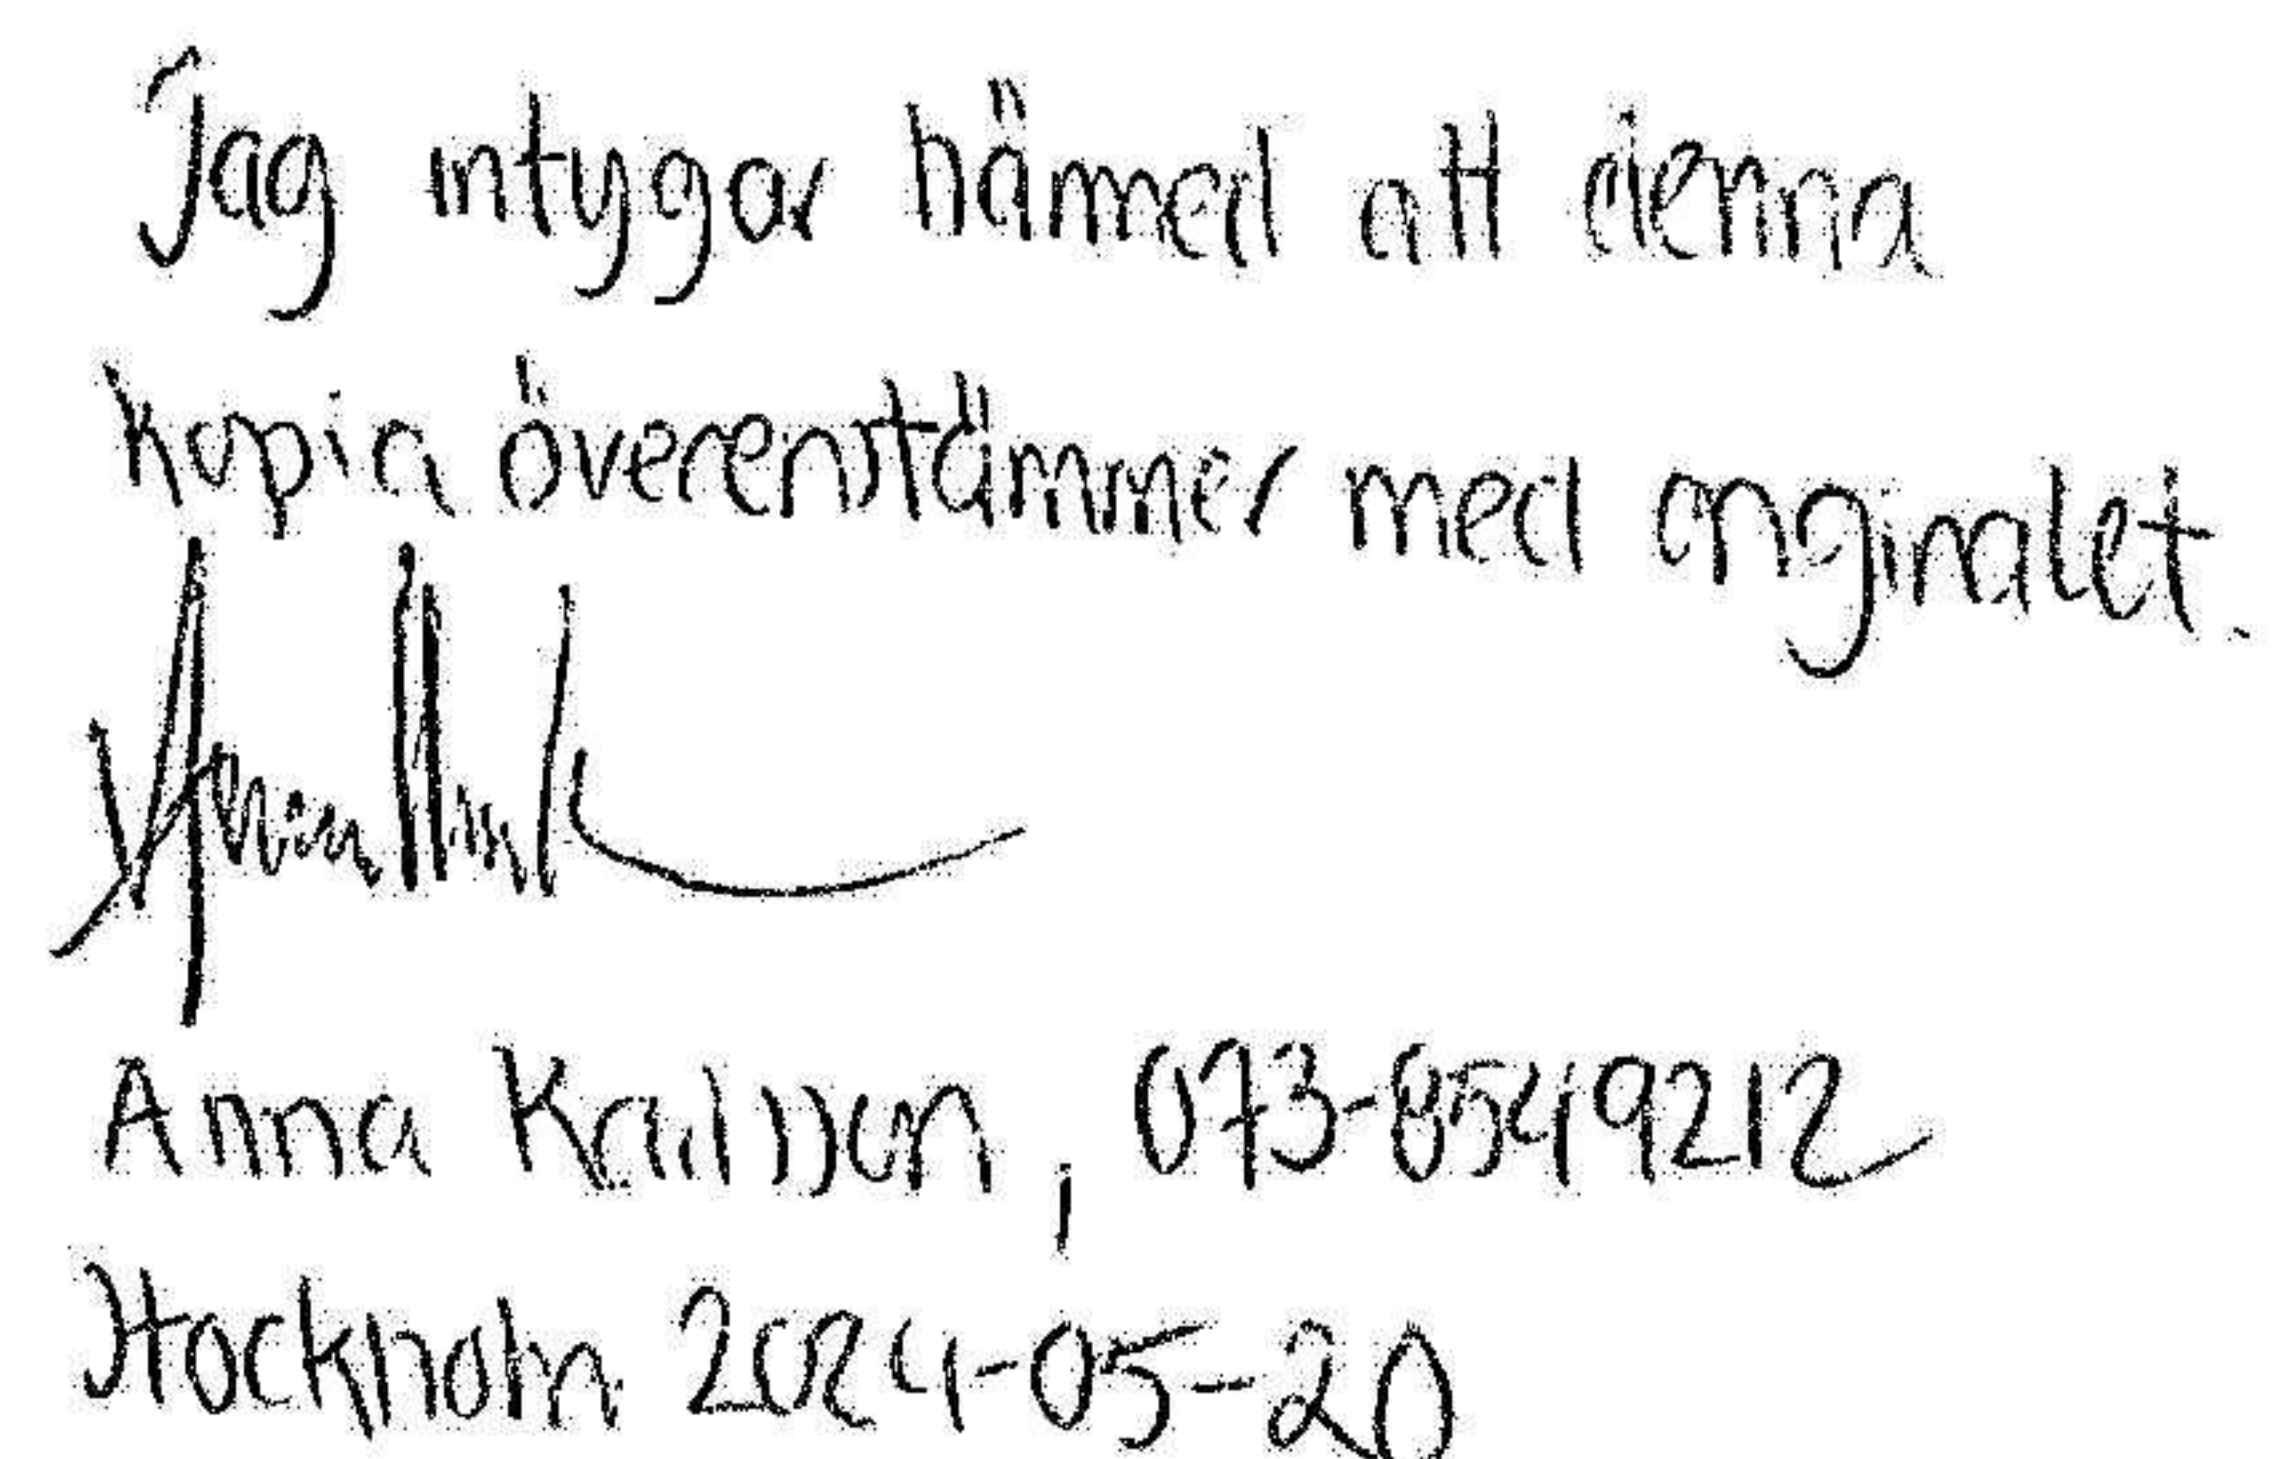 Jag intygar härmed att denna
kopia överensstämmer med originalet.
Anna Karlsson, 073-8549212
Stockholm 2024-05-20